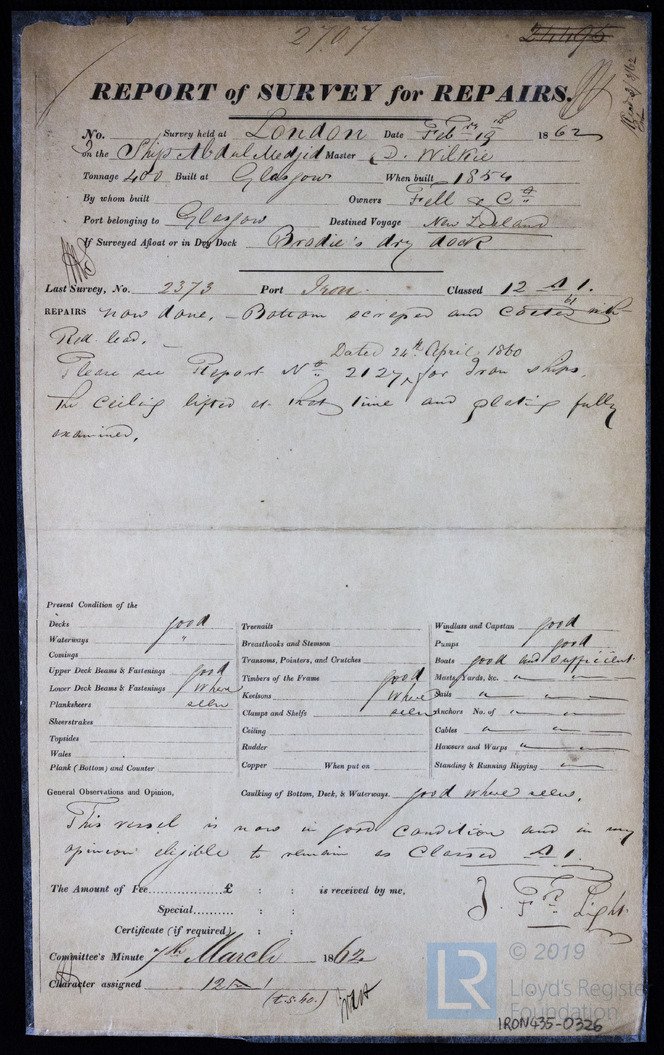 2707
24496
REPORT of SURVEY for REPAIRS.
No. Survey held at London Date Feb ry 19 th 1862
on the Ship Abdul Medjid Master D. Wilkie
Tonnage 400 Built at Glasgow When built 1854
By whom built Owners Fell & Co
Port belonging to Glasgow Destined Voyage New Zealand
If Surveyed Afloat or in Dry Dock Brodie's dry dock
Last Survey, No. 2373 Port Iron. Classed 12 A 1.
REPAIRS now done, - Bottom scraped and Coated with
Red lead. -
Dated 24th April, 1860
Please see Report No 2127, for Iron ships.
The Ceiling lifted at that time and plating fully
examined.
Present Condition of the
Decks good
Waterways "
Comings
Upper Deck Beams & Fastenings good
Lower Deck Beams & Fastenings where
Planksheers seen
Sheerstrakes
Topsides
Wales
Plank (Bottom) and Counter
Treenails
Breasthooks and Stemson
Transoms, Pointers, and Crutches
Timbers of the Frame good
Keelsons where
Clamps and Shelfs seen
Ceiling
Rudder
Copper When put on
Windlass and Capstan good
Pumps good
Boats good and sufficient
Masts, Yards, &c. " "
Sails " "
Anchors No. of " "
Cables " "
Hawsers and Warps " "
Standing & Running Rigging "
General Observations and Opinion, Caulking of Bottom, Deck, & Waterways. good where seen.
This vessel is now in good condition and in my
opinion eligible to remain as Classed A 1.
The Amount of Fee............... £ : : is received by me,
Special.......... : :
Certificate (if required) : :
Light
Committee's Minute 7th March 1862
Character assigned 12 A 1
(t.s.bo.)
© 2019
LR
Lloyd's Register
Foundation
IRON435-0326